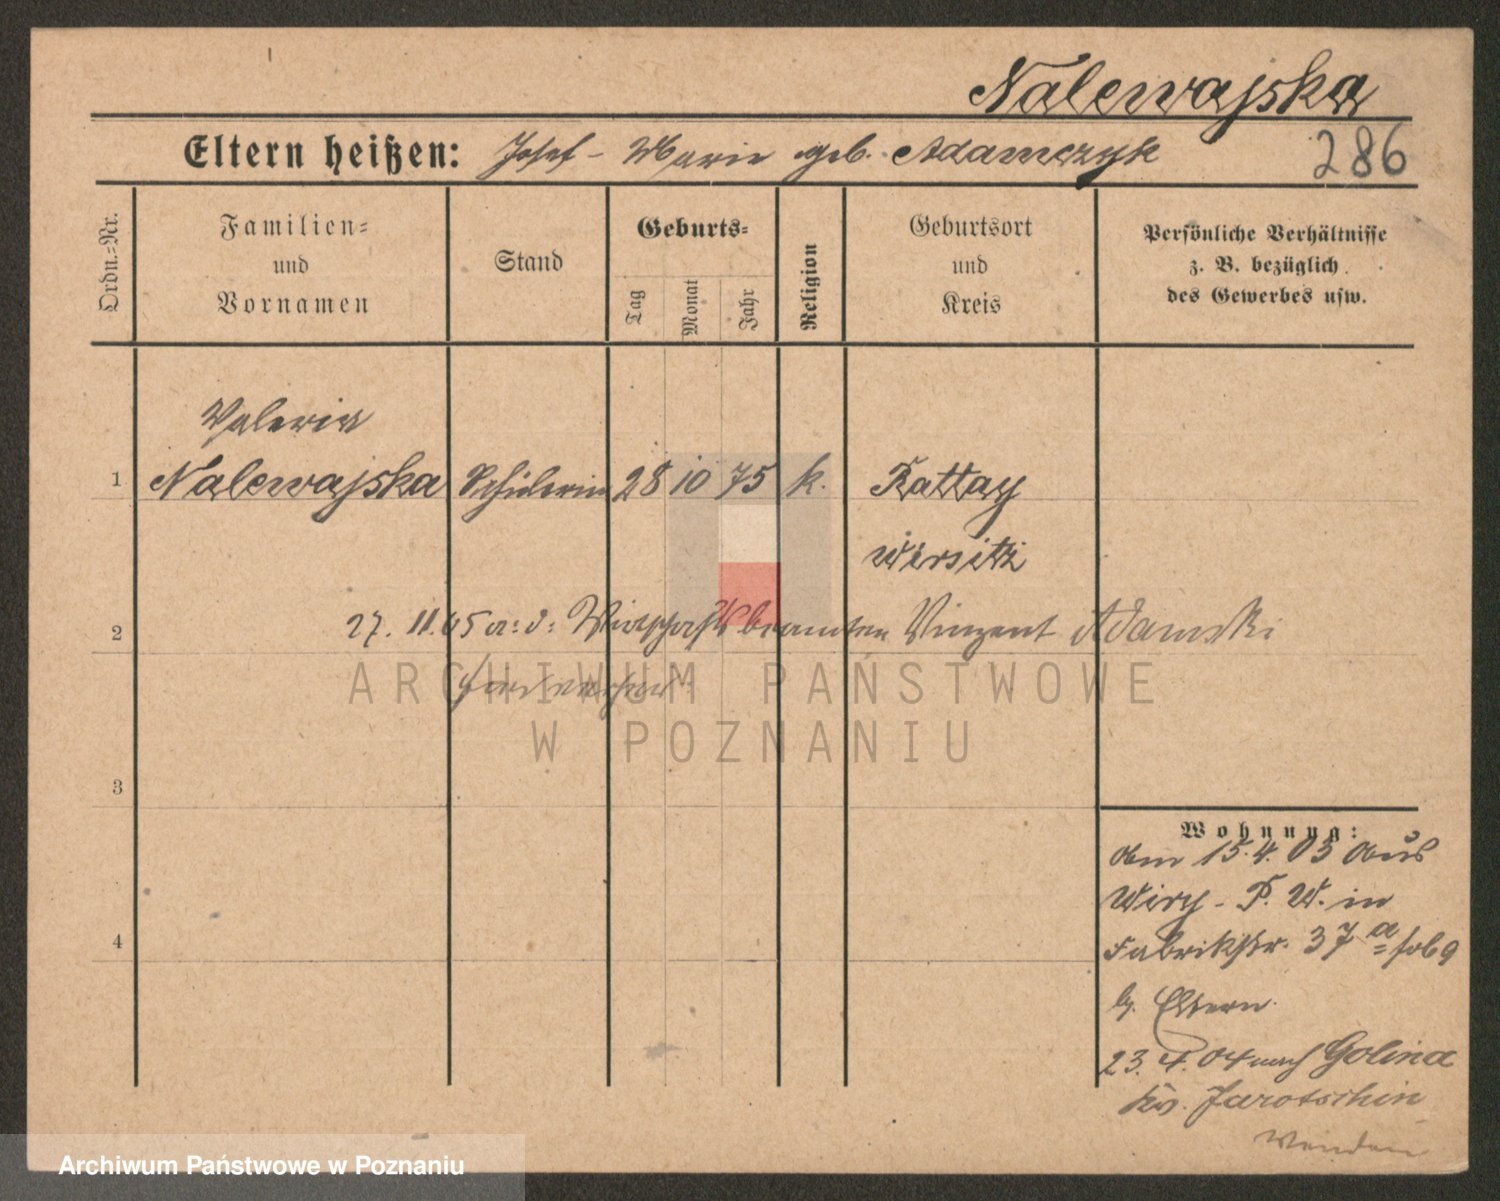 Nalewajska
Eltern heißen: Josef - Marie geb. Adamczyk 286
Ordn.=Nr.
Familien=
und
Vornamen
Stand
Geburts=
Tag
Monat
Jahr
Religion
Geburtsort
und
Kreis
Persönliche Verhältnisse
z. B. bezüglich
des Gewerbes usw.
Valeria
1 Nalewajska Schülerin 28 10 75 k. Rattay
Wirsitz
2 27. 11. 05 Wirtschaftsbeamten Vinzent Adamski
ARCHIWUM PAŃSTWOWE
W POZNANIU
3
4
Wohnung:
15. 4. 03 aus
Wiry - P. W. in
Fabrikstr. 37 a
b. Eltern
23. 4. 04 nach Golina
Kr. Jarotschin
Wenden
Archiwum Państwowe w Poznaniu